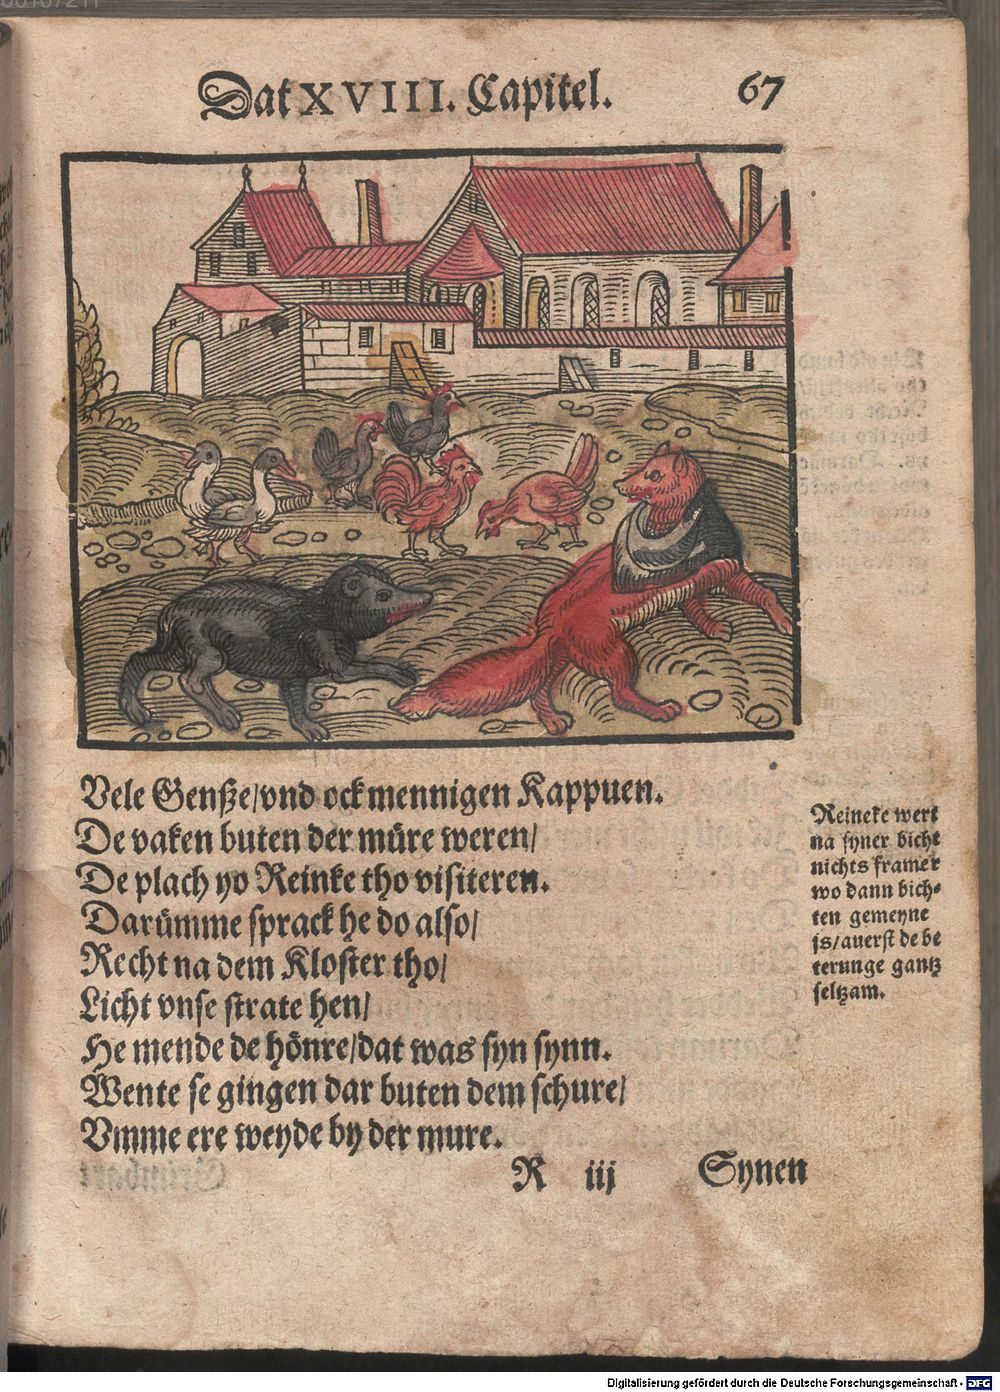 Dat XVIII. Capitel. 67
Vele Genße/vnd ock mennigen Kappuen.
De vaken buten der müre weren/
De plach yo Reinke tho visiteren.
Darümme sprack he do also/
Recht na dem Kloster tho/
Licht vnse strate hen/
He mende de hönre/dat was syn synn.
Wente se gingen dar buten dem schure/
Vmme ere weyde by der mure.
Reineke wert
na syner bicht
nichts framer
wo dann bich-
ten gemeyne
is/auerst de be
terunge gantz
seltzam.
R iij Synen
Digitalisierung gefördert durch die Deutsche Forschungsgemeinschaft - DFG